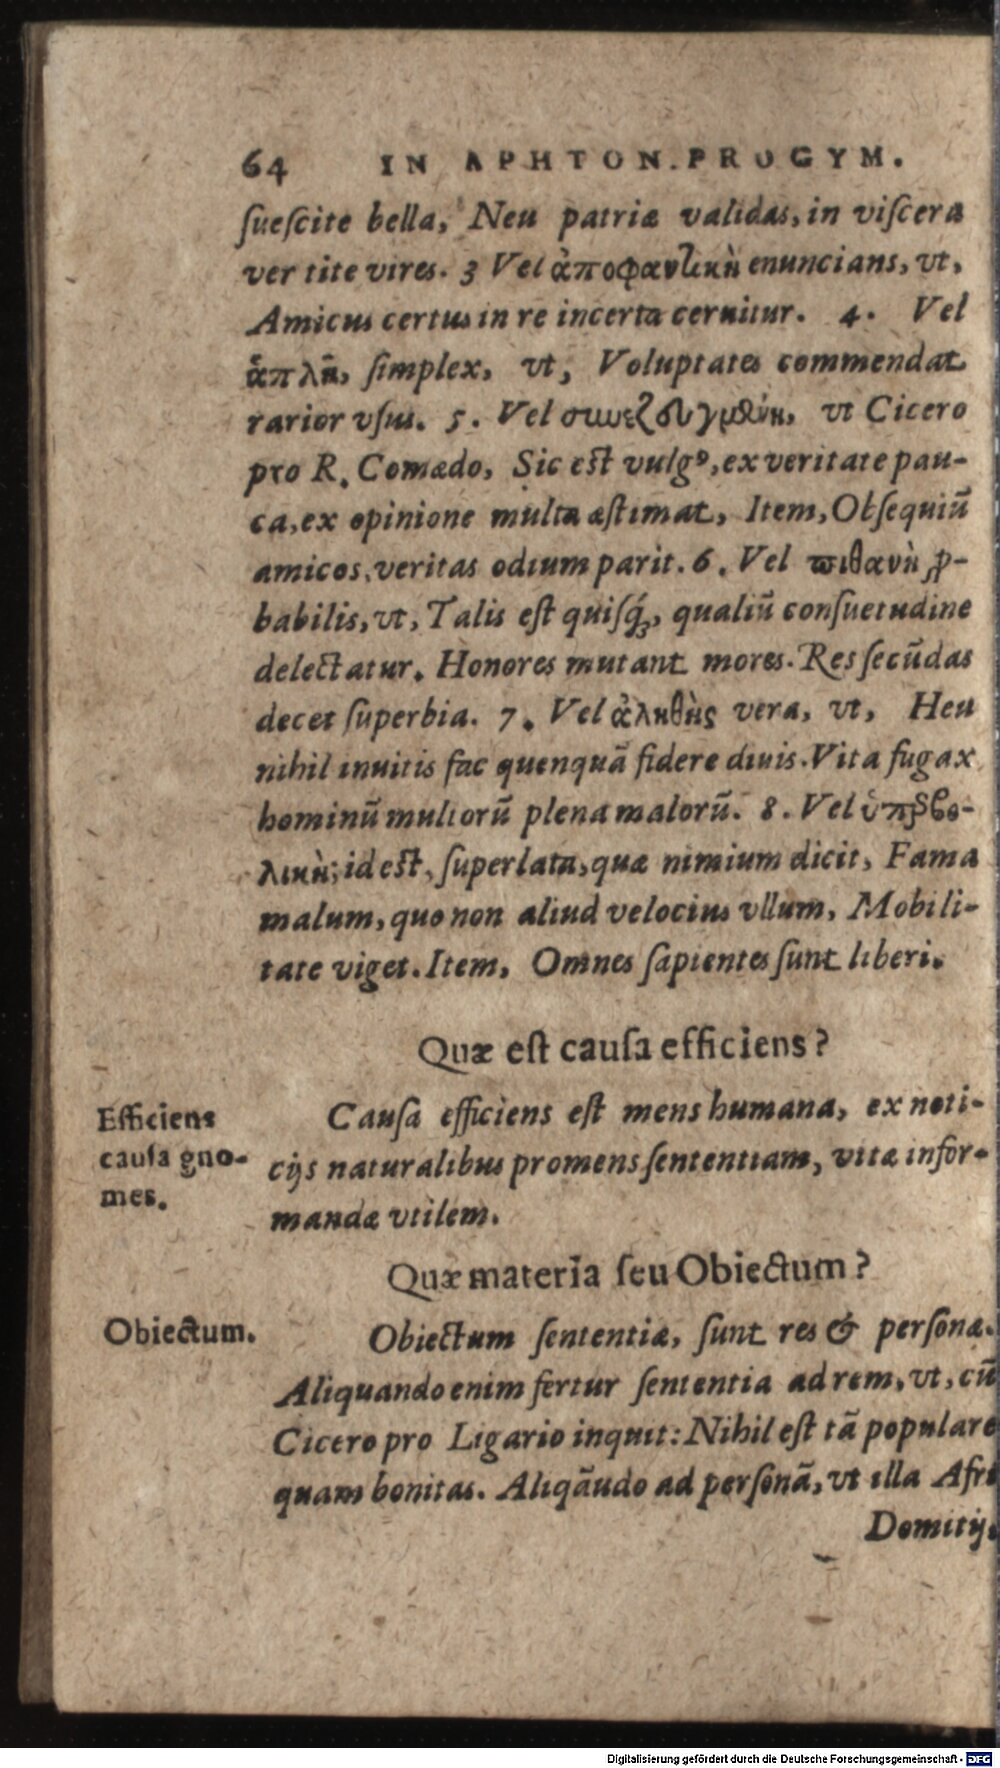 64 IN APHTON.PROGYM.
ſueſcite bella, Neu patriæ validas, in viſcera
ver tite vires. 3 Vel ἀποφαντικὴ enuncians, vt,
Amicus certus in re incerta cernitur. 4. Vel
ἁπλῆ, ſimplex, vt, Voluptates commendat
rarior vſus. 5. Vel συνεζευγμένη, vt Cicero
pro R. Comædo, Sic eſt vulgꝰ, ex veritate pau-
ca, ex opinione multa æſtimat, Item, Obſequiū
amicos, veritas odium parit. 6. Vel πιθανὴ ꝓ-
babilis, vt, Talis eſt quiſq́ꝫ, qualiū conſuetudine
delectatur. Honores mutant mores. Res ſecūdas
decet ſuperbia. 7. Vel ἀληθὴς vera, vt, Heu
nihil inuitis fac quenquā fidere diuis. Vita fugax
hominū multorū plena malorū. 8. Vel ὑπερβο-
λικὴ; id eſt, ſuperlata, quæ nimium dicit, Fama
malum, quo non aliud velocius vllum, Mobili-
tate viget. Item, Omnes ſapientes ſunt liberi.
Quæ eſt cauſa efficiens?
Efficiens
cauſa gno-
mes.
Cauſa efficiens eſt mens humana, ex noti-
cijs naturalibus promens ſententiam, vitæ infor-
mandæ vtilem.
Quæ materia ſeu Obiectum?
Obiectum.
Obiectum ſententiæ, ſunt res & perſonæ.
Aliquando enim fertur ſententia ad rem, vt, cū
Cicero pro Ligario inquit: Nihil eſt tā populare
quam bonitas. Aliqāudo ad perſonā, vt illa Afri
Domitij.
Digitalisierung gefördert durch die Deutsche Forschungsgemeinschaft - DFG